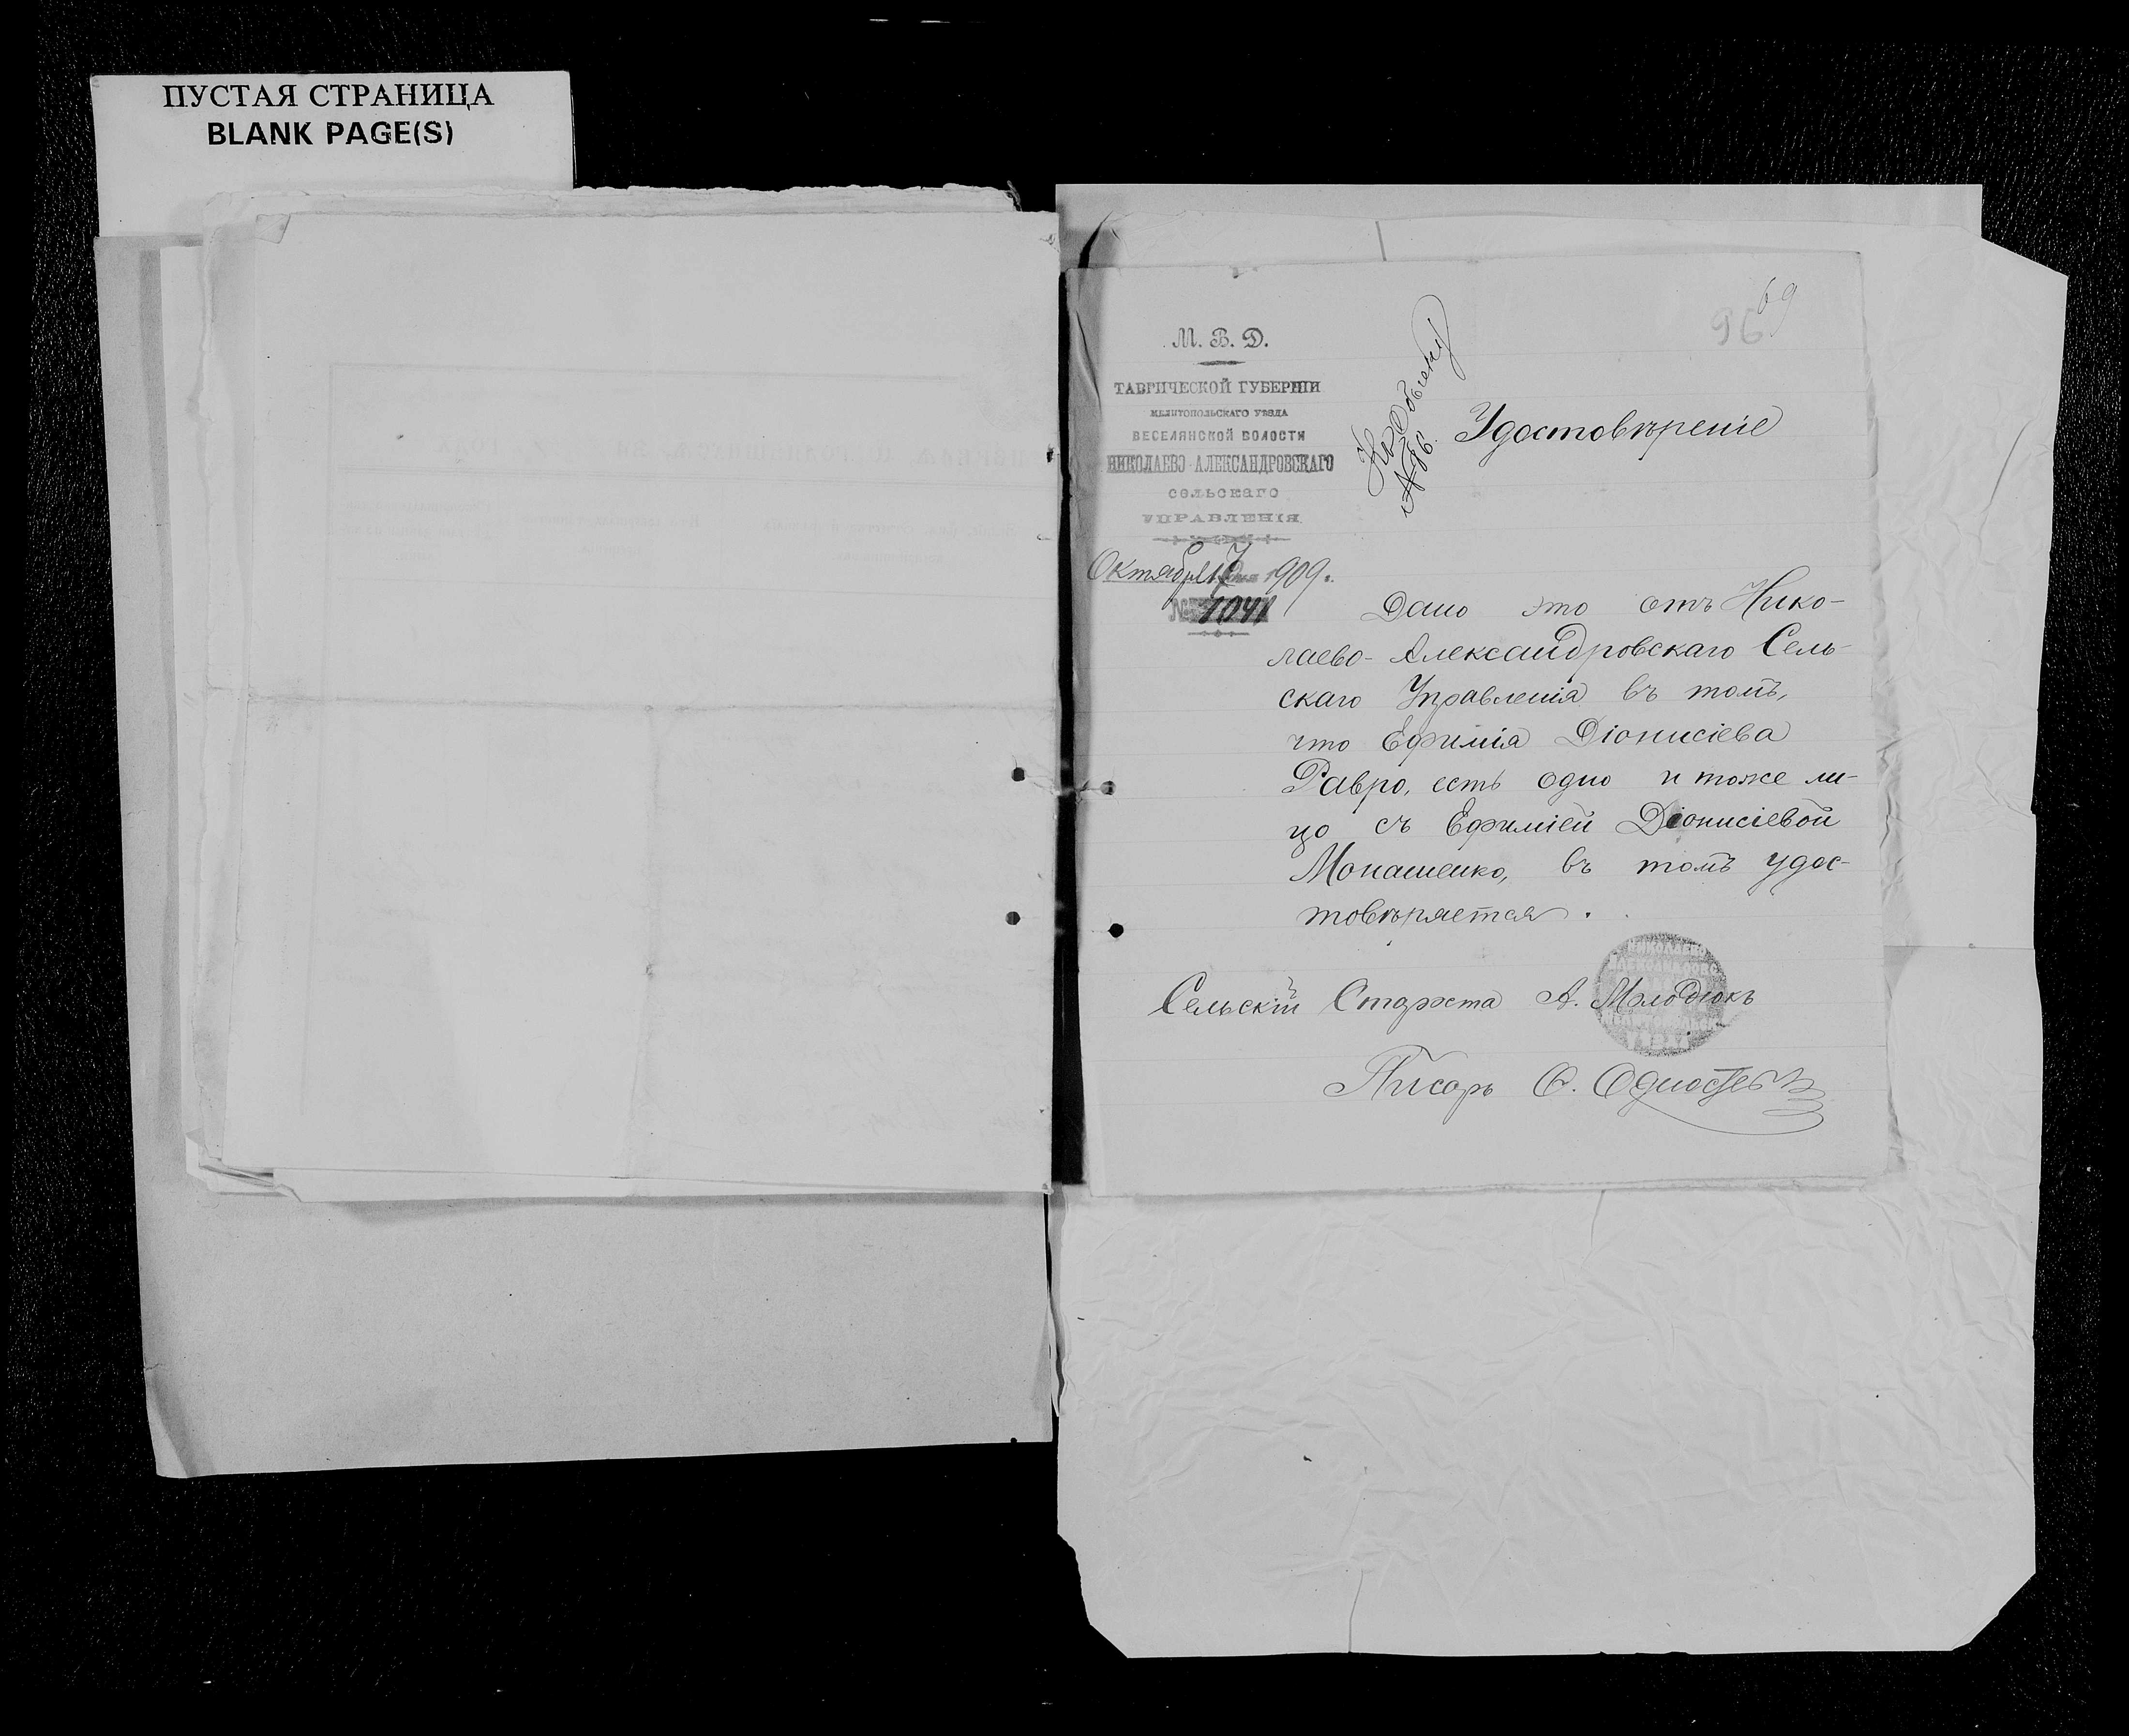 ПУСТАЯ СТРАНИЦА
BLANK PAGE(S)
69
96
М. В. Д.
ТАВРИЧЕСКОЙ ГУБЕРНІИ
МЕЛИТОПОЛЬСКАГО УѢЗДА
ВЕСЕЛЯНСКОЙ ВОЛОСТИ
НИКОЛАЕВО-АЛЕКСАНДРОВСКАГО
СЕЛЬСКАГО
УПРАВЛЕНІЯ
Октября 17 дня 1909 г.
№ 1041
Къ обыску
№86.
Удостовѣреніе
Дано это отъ Нико-
лаево-Александровскаго Сель-
скаго Управленія въ томъ,
что Ефимія Діонисіева
Равро, есть одно и тоже ли-
цо съ Ефиміей Діонисіевой
Монашенко, въ томъ удос-
товѣряется.
Сельскій Староста А. Молодюкъ
Писарь